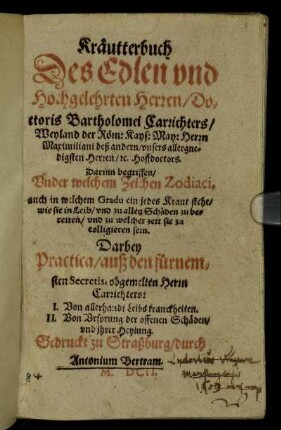 Kräutterbuch
Des Edlen vnd
Hochgelehrten Herren/Do-
ctoris Bartholomei Carrichters/
Weyland der Röm: Kays: May: Herrn
Maximiliani deß andern/vnsers allergne-
digsten Herren/ꝛc. Hoffdoctors.
Darinn begriffen/
Vnder welchem Zeichen Zodiaci,
auch in welchem Gradu ein jedes Kraut stehe/
wie sie in Leib/vnd zu allen Schäden zu be-
reiten/vnd zu welcher zeit sie zu
colligieren sein.
Darbey
Practica/auß den fürnem-
sten Secretis, obgemelten Herrn
Carrichters:
I. Von allerhandt Leibs kranckheiten.
II. Von Vrsprung der offenen Schäden/
vnd jhrer Heylung.
Gedruckt zu Straßburg/durch
Antonium Bertram.
M. DCII.
84